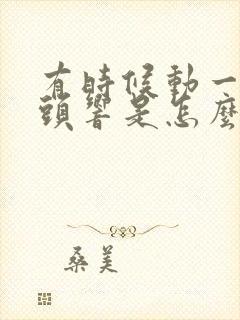 有時候動一
頭響是怎麼
桑美